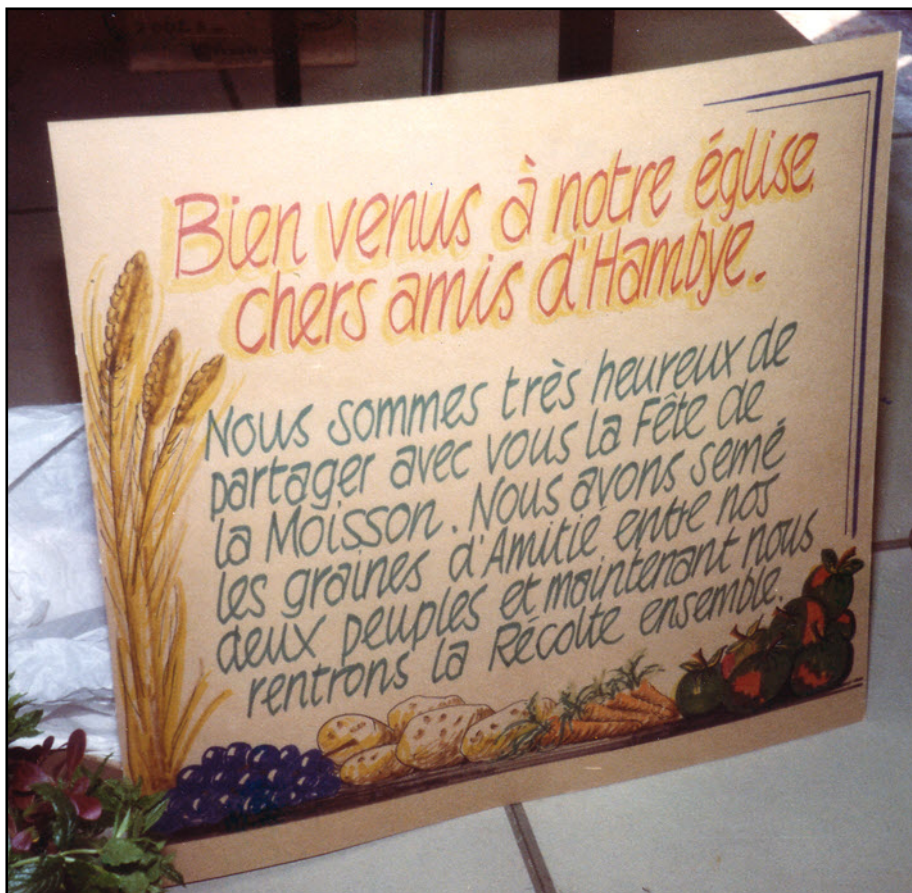 Bien venus à notre église
chers amis d'Hambye.
Nous sommes très heureux de
partager avec vous la Fête de
la Moisson. Nous avons semé
les graines d'Amitié entre nos
deux peuples et maintenant nous
rentrons la Récolte ensemble.